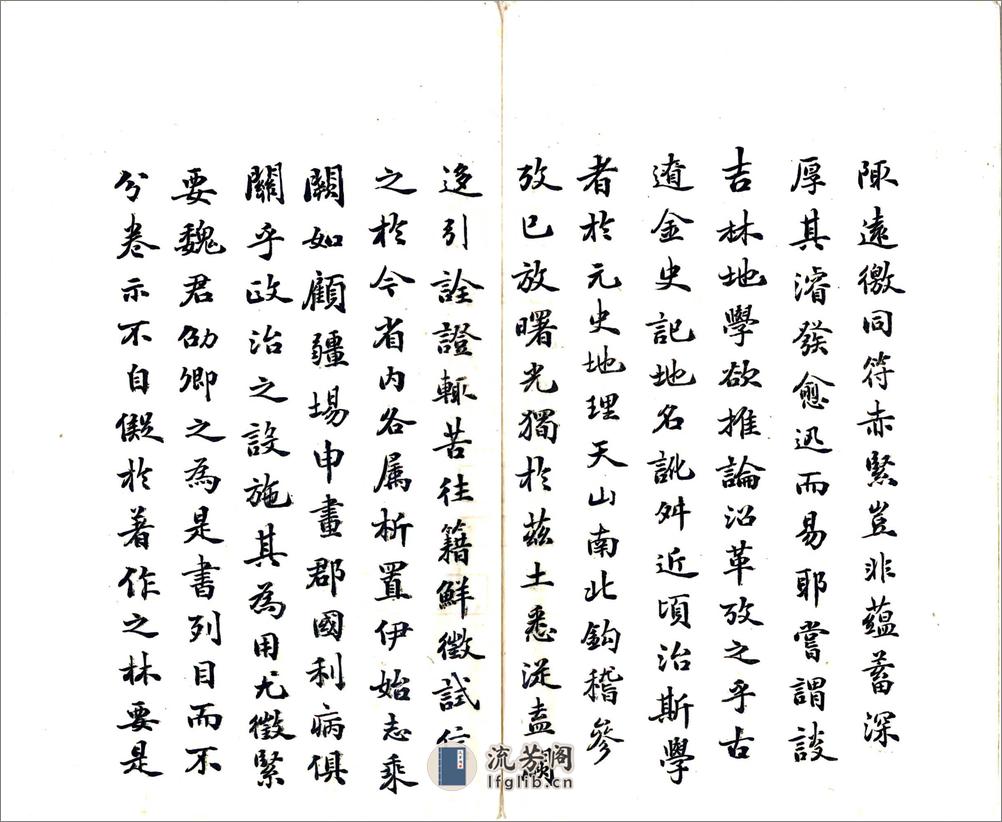 陋遠徼同符赤緊豈非蘊蓄深
厚其濬發愈迅而易耶嘗謂談
吉林地學欲推論沿革攷之乎古
遼金史記地名訛舛近頃治斯學
者於元史地理天山南北鈎稽參
攷已放曙光獨於茲土悉從蓋闕
迻引詮證輒苦往籍鮮徵試
之於今省内各属析置伊始志乘
闕如顧疆埸申畫郡國利病俱
關乎政治之設施其為用尤徵緊
要魏君劭卿之為是書列目而不
分卷示不自儗於著作之林要是
流芳阁
lfglib.cn